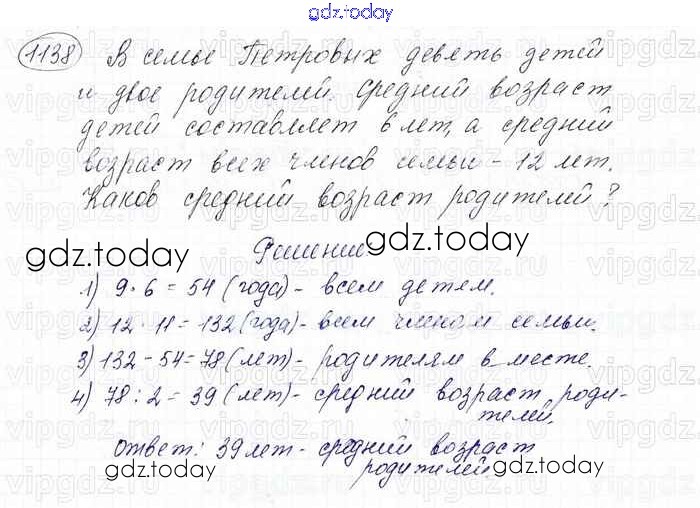 gdz.today
1138 В семье Петровых девять детей
и двое родителей. Средний возраст
детей составляет 6 лет, а средний
возраст всех членов семьи - 12 лет.
Каков средний возраст родителей?
gdz.today
Решение
gdz.today
1) 9·6 = 54 (года) - всем детям.
2) 12·11 = 132 (года) - всем членам семьи.
3) 132 - 54 = 78 (лет) - родителям в месте.
4) 78 : 2 = 39 (лет) - средний возраст роди-
телей.
Ответ: 39 лет - средний возраст
родителей.
gdz.today
gdz.today